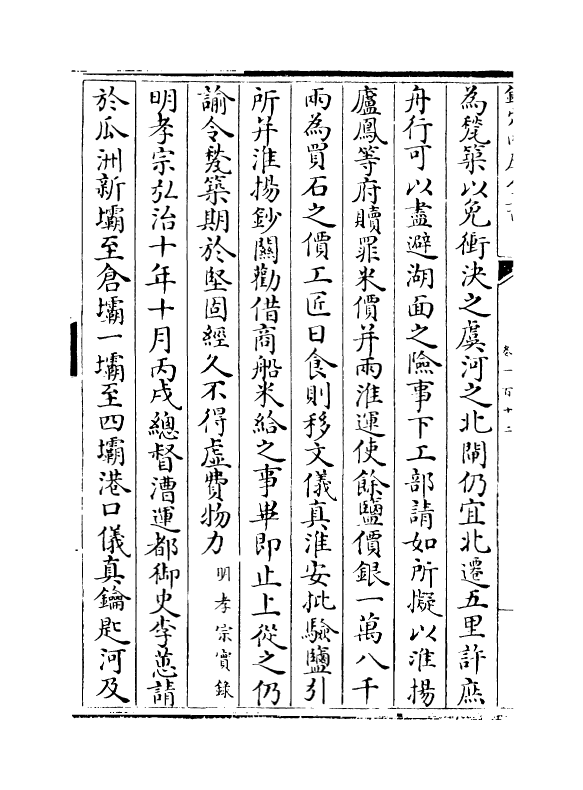 為甃築以免衝決之虞河之北閘仍宜北遷五里許庶
舟行可以盡避湖面之險事下工部請如所擬以淮揚
廬鳳等府贖罪米價并兩淮運使餘鹽價銀一萬八千
兩為買石之價工匠日食則移文儀真淮安批驗鹽引
所并淮揚鈔關勸借商船米給之事畢即止上從之仍
諭令甃築期於堅固經久不得虛費物力明孝宗實錄
明孝宗弘治十年十月丙戌總督漕運都御史李蕙請
於瓜洲新壩至倉壩一壩至四壩港口儀真鑰匙河及
卷一百十二